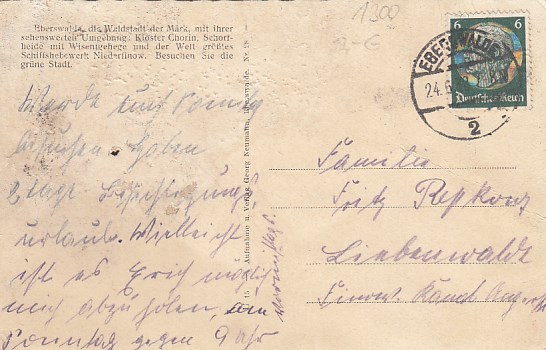 Eberswalde, die Waldstadt der Mark, mit ihrer
sehenswerten Umgebung. Kloster Chorin, Schorf-
heide mit Wisentgehege und der Welt größtes
Schiffshebewerk Niederfinow. Besuchen Sie die
grüne Stadt.
1300
EBERSWALDE
24.6
2
6 6
Deutsches Reich
Aufnahme u. Verlag Georg Neumann, Eberswalde. Nr.
Werde Euch Sonntag
besuchen. Haben
2 Tage Besichtigungs
urlaub. Vielleicht
ist es Erich möglich
mich abzuholen, am
Sonntag gegen 9 Uhr
vormittags.
Familie
Fritz
Liebenwalde